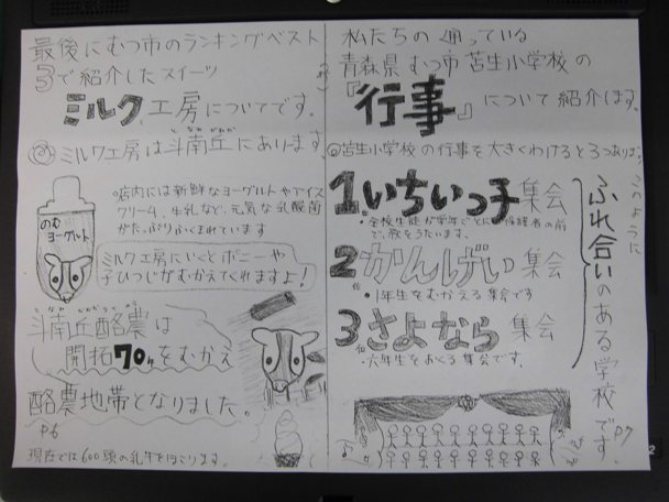 最後にむつ市のランキングベスト
3で紹介したスイーツ
ミルク工房についてです。
ミルク工房は斗南丘にあります。
となみがおか
店内には新鮮なヨーグルトやアイス
クリーム、牛乳など、元気な乳酸菌
がたっぷりふくまれています
のむ
ヨーグルト
ミルク工房にいくとポニーや
子ひつじがむかえてくれますよ!
斗南丘酪農は
開拓70をむかえ
酪農地帯となりました。
P6
現在では600頭の乳牛をほこります。
私たちの通っている
青森県むつ市苫生小学校の
『行事』について紹介します。
苫生小学校の行事を大きくわけると3つあります。
1.いちいっ子集会
全校生徒が学年ごとに保護者の前
で、歌をうたいます。
2かんげい集会
1年生をむかえる集会です
3さよなら集会
六年生をおくる集会です。
このように
ふれ合いのある学校です。
P7